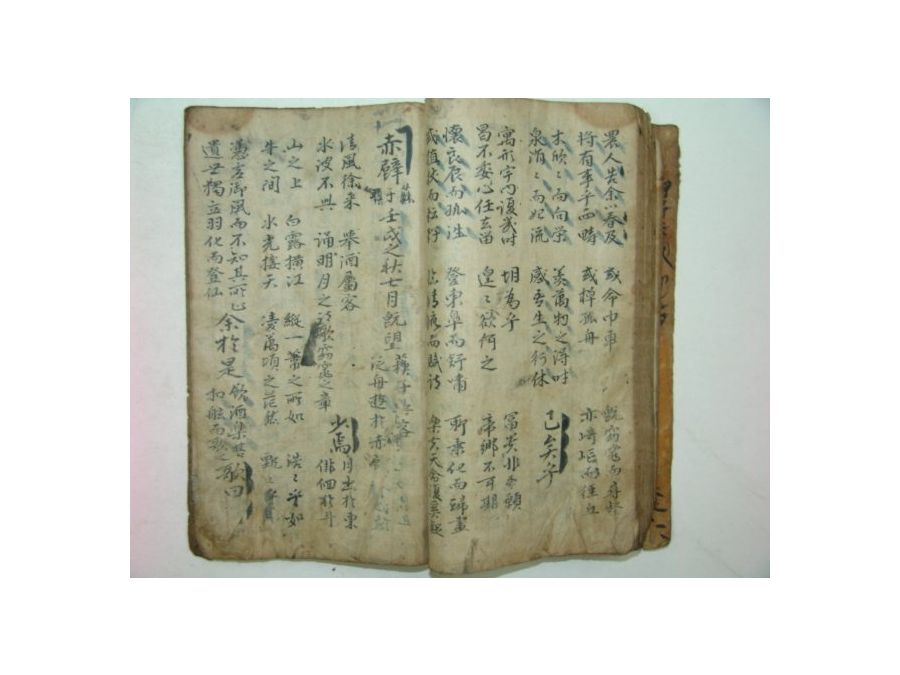 農人告余以春及 或命巾車 既窈窕而尋壑
將有事乎西疇 或棹孤舟 亦崎嶇而經丘
木欣々而向榮 羨萬物之得時
泉涓々而始流 感吾生之行休 已矣乎
寓形宇內復幾時 胡爲乎 富貴非吾願
曷不委心任去留 遑々欲何之 帝鄉不可期
懷良辰而孤往 登東皐而舒嘯 聊乘化而歸盡
或植杖而耘耔 臨淸流而賦詩 樂夫天命復奚疑
赤壁 蘇子 壬戌之秋七月旣望 蘇子與客 泛舟遊於赤
淸風徐來 擧酒屬客 少焉 月出於東
水波不興 誦明月之詩歌窈窕之章 徘徊於斗
山之上 白露橫江 縱一葦之所如 浩々乎如
牛之間 水光接天 凌萬頃之茫然
憑虛御風而不知其所止 余於是 飮酒樂甚
遺世獨立羽化而登仙 扣舷而歌之歌曰